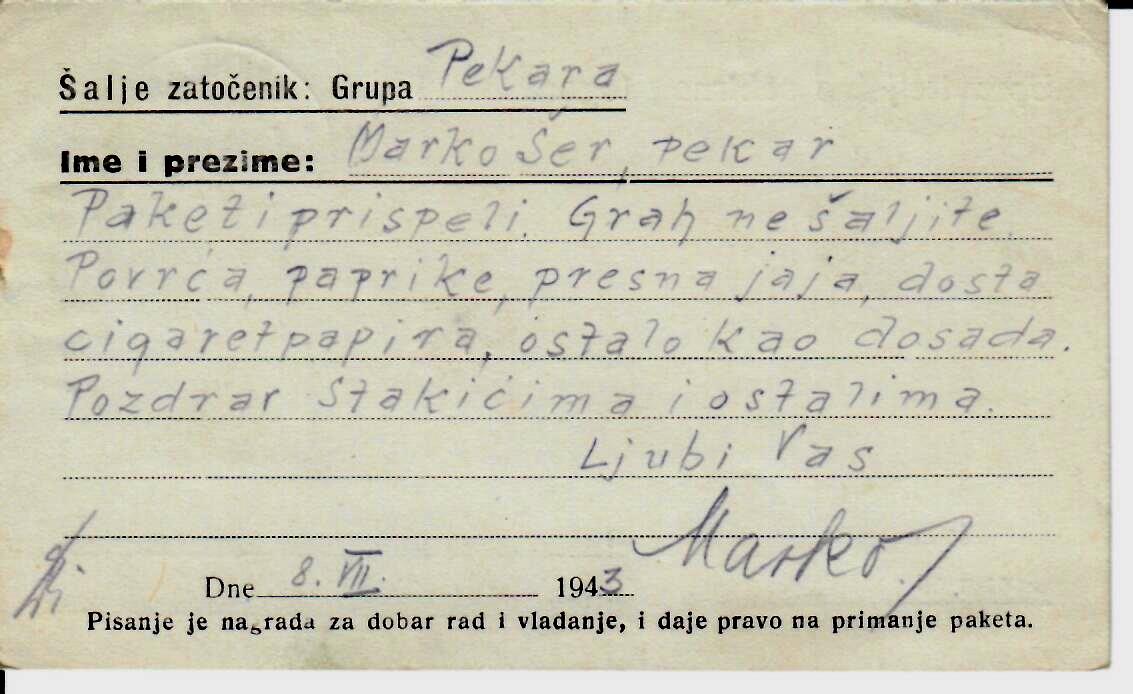 Šalje zatočenik: Grupa Pekara
Ime i prezime: Marko Šer, pekar
Paketi prispeli. Grah ne šaljite.
Povrća, paprike, presna jaja, dosta
cigaretpapira, ostalo kao dosada.
Pozdrav Stakićima i ostalima.
Ljubi Vas
Marko
Dne 8. VII. 1943
Pisanje je nagrada za dobar rad i vladanje, i daje pravo na primanje paketa.